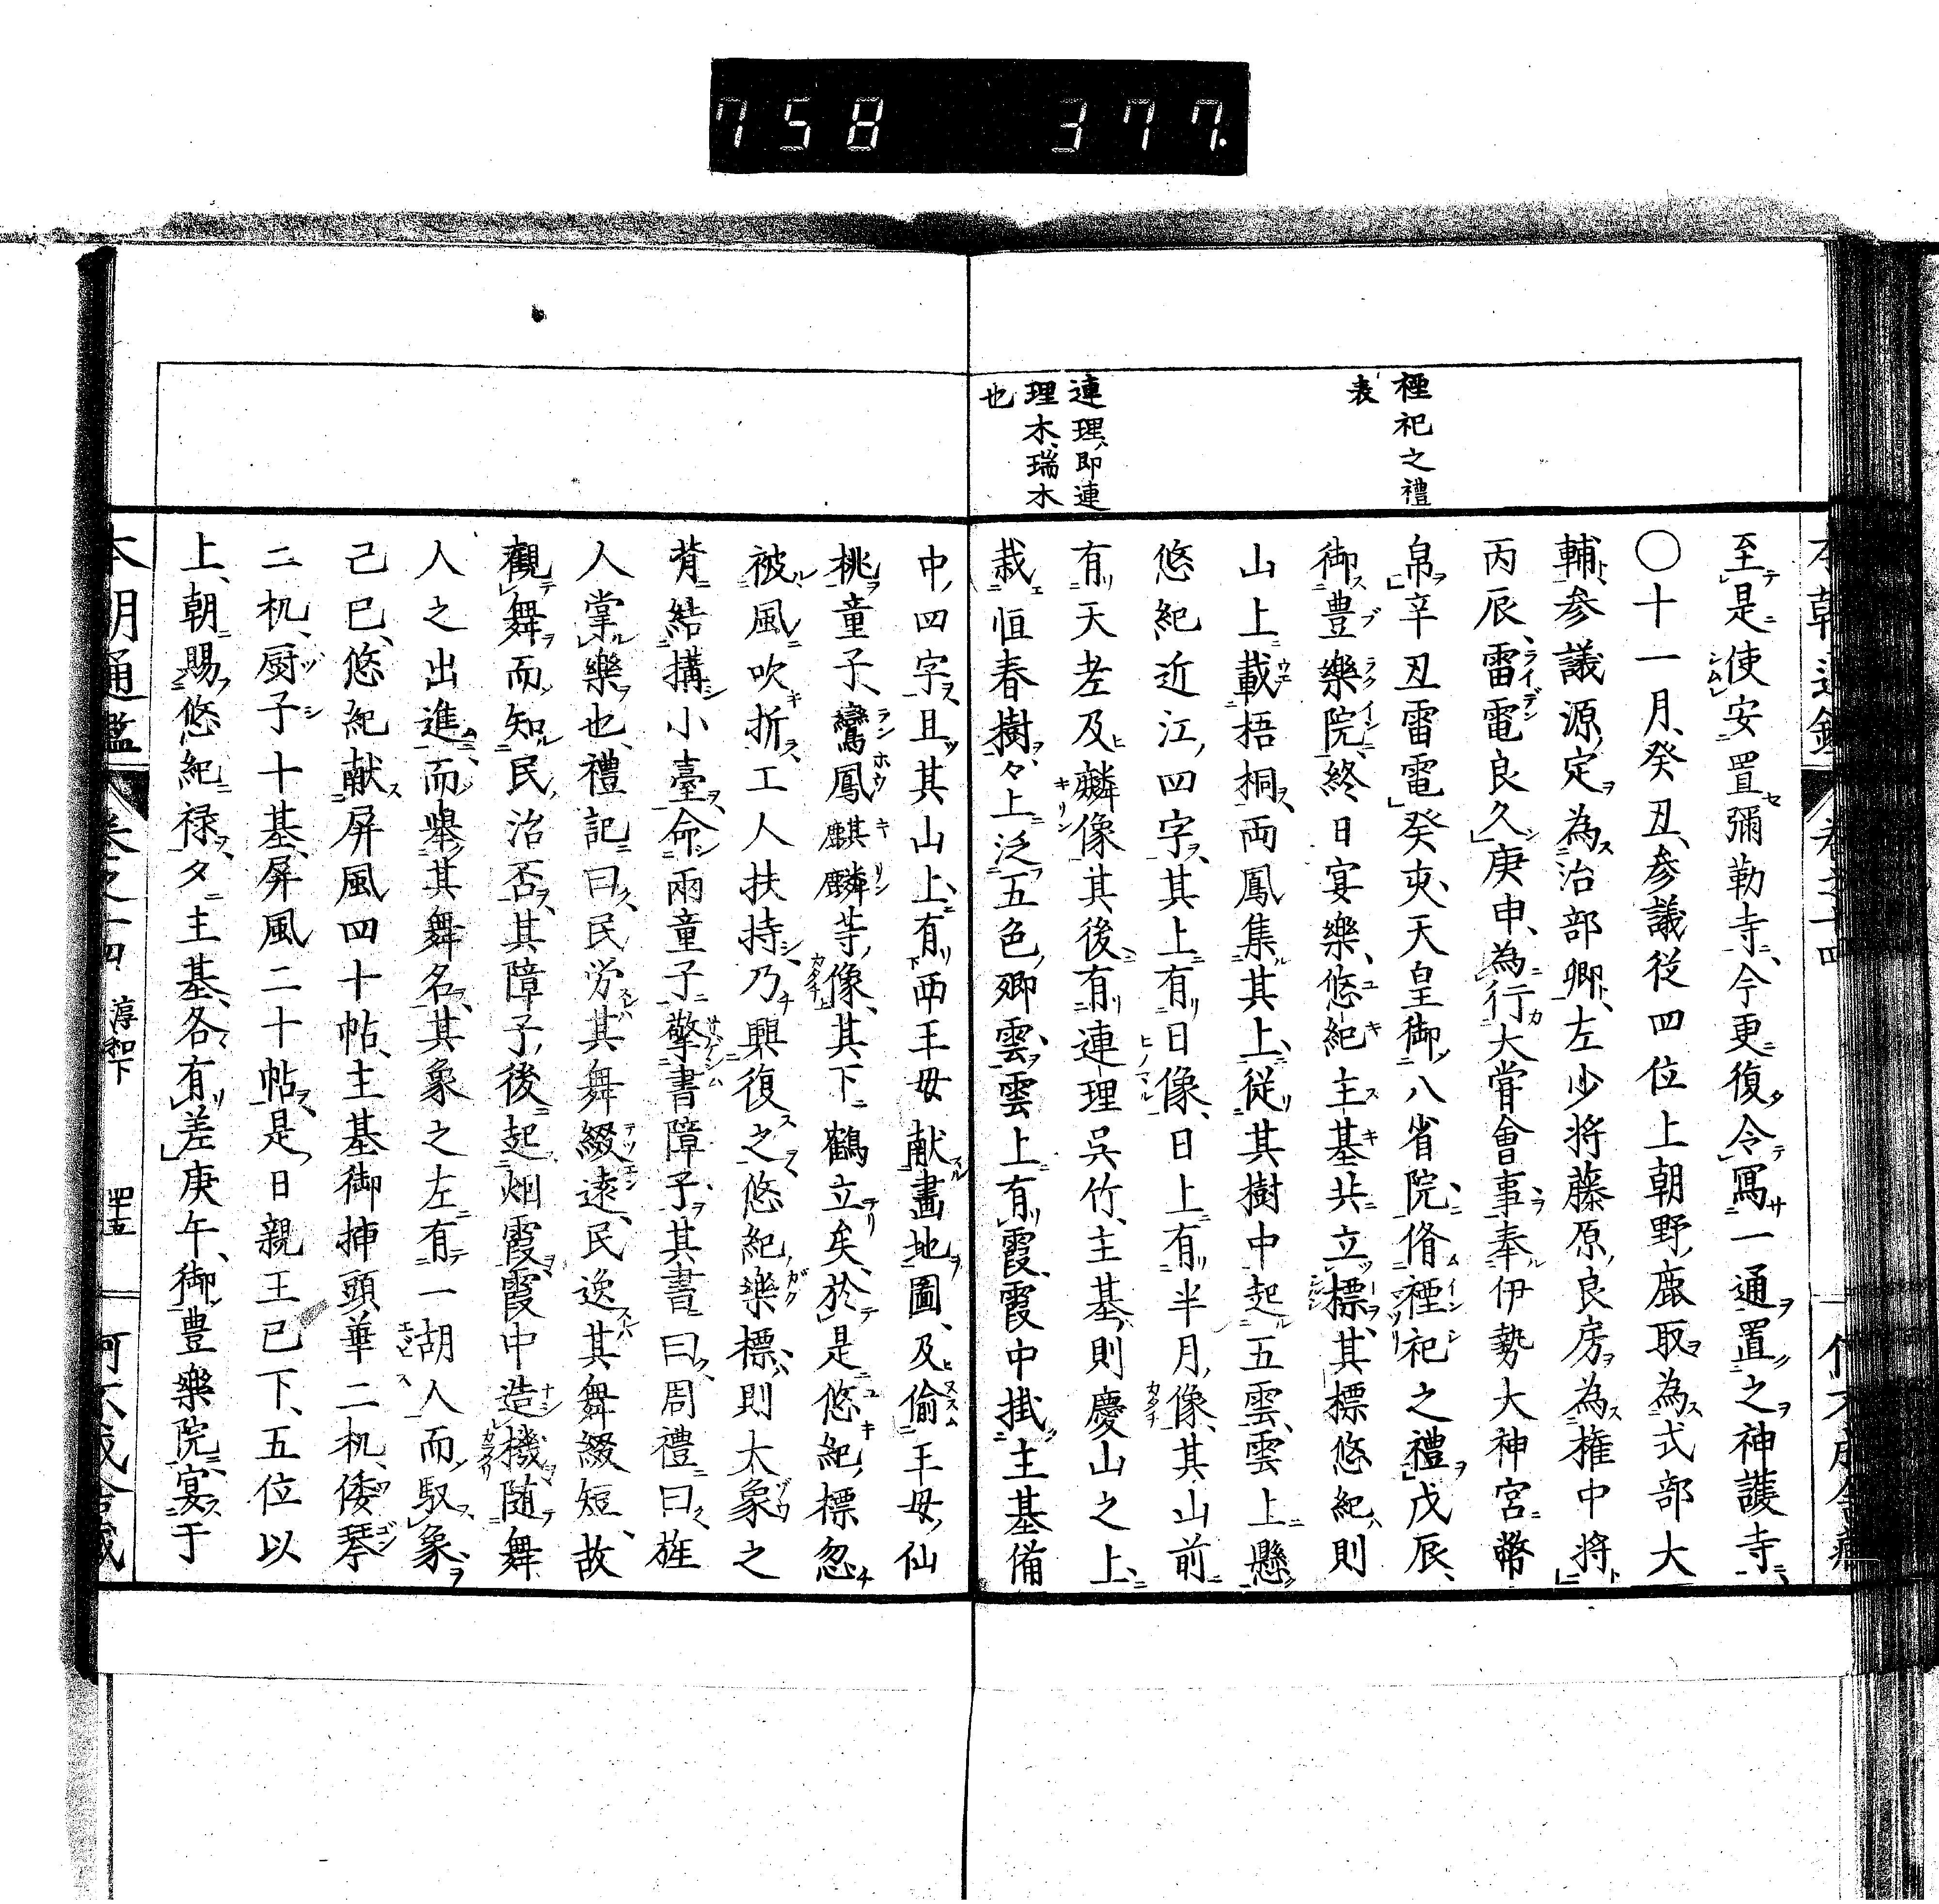 758 377.
禋祀之禮
表
連理、即連
理木、瑞木
也
至是使安置彌勒寺、今更復令寫一通置之神護寺、
〇十一月、癸丑、參議從四位上朝野鹿取為式部大
輔、參議源定為治部卿、左少將藤原良房為權中將、
丙辰、雷電良久、庚申、為行大嘗會事奉伊勢大神宮幣
帛、辛丑雷電、癸亥、天皇御八省院、脩禋祀之禮、戊辰、
御豊樂院、終日宴樂、悠紀主基共立標、其標悠紀則
山上載梧桐、両鳳集其上、從其樹中起五雲、雲上懸
悠紀近江四字、其上有日像、日上有半月像、其山前
有天老及麟像、其後有連理呉竹、主基則慶山之上、
栽恒春樹、々上泛五色卿雲、雲上有霞、霞中掛主基備
中四字、且其山上、有西王母献畫地圖、及偷王母仙
桃童子、鸞鳳麒麟等像、其下鶴立矣、於是悠紀標忽
被風吹折、工人扶持、乃興復之、悠紀樂標、則大象之
背結搆小臺、命兩童子擎書障子、其書曰、周禮曰、旄
人掌樂也、禮記曰、民労其舞綴遠、民逸其舞綴短、故
觀舞而知民治否、其障子後起烟霞、霞中造機随舞
人之出進、而舉其舞名、其象之左有一胡人而馭象、
己巳、悠紀献屏風四十帖、主基御挿頭華二机、倭琴
二机、厨子十基、屏風二十帖、是日親王已下、五位以
上、朝賜悠紀禄、夕主基、各有差、庚午、御豊樂院、宴于
本朝通鑑
卷之十四 淳和下
四十五